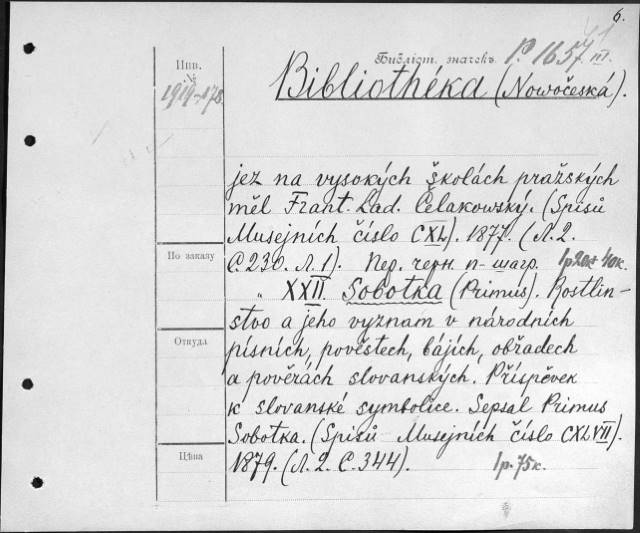 6.
Инв.
№
1919-178.
Библіот. значекъ P. 1657 III.
Bibliothéka (Nowočeská).
jez na vysokých školách pražských
měl Frant. Lad. Čelakowský. (Spisů
Musejních číslo CXL). 1877. (Л.2.
С.230. Л.1). Пер. черн. п-шагр. 1р.20к 40к.
По заказу
" XXII. Sobotka (Primus). Rostlin-
stvo a jeho vyznam v národních
Откуда
písních, pověstech, bájích, obřadech
a pověrách slovanských. Příspěvek
k slovanské symbolice. Sepsal Primus
Sobotka. (Spisů Musejních číslo CXLVII).
Цѣна
1879. (Л.2. С.344). 1р.75к.